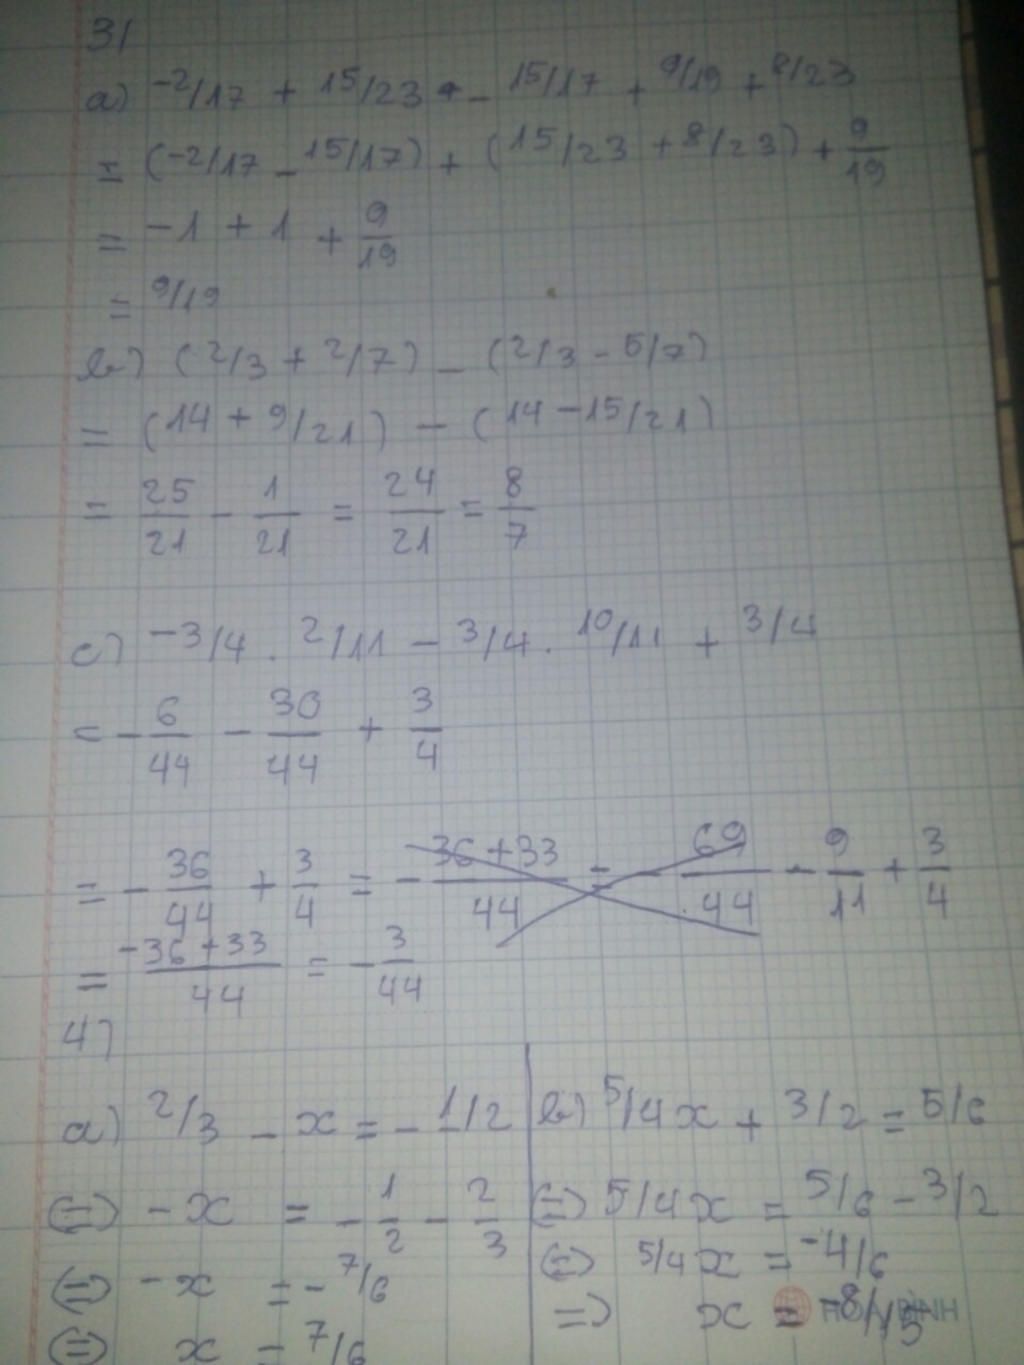 3/
a) -2/17 + 15/23 + - 15/17 + 9/19 + 8/23
= (-2/17 - 15/17) + (15/23 + 8/23) + 9/19
= -1 + 1 + 9/19
= 9/19
b) (2/3 + 2/7) - (2/3 - 5/7)
= (14 + 9/21) - (14 - 15/21)
= 25/21 - 1/21 = 24/21 = 8/7
c) -3/4 . 2/11 - 3/4 . 10/11 + 3/4
= - 6/44 - 30/44 + 3/4
= - 36/44 + 3/4 = - 36+33/44 = - 69/44 - 9/11 + 3/4
= -36+33/44 = - 3/44
4)
a) 2/3 - x = - 1/2
(=) - x = - 1/2 - 2/3
(=) - x = - 7/6
(=) x = 7/6
b) 5/4x + 3/2 = 5/6
(=) 5/4x = 5/6 - 3/2
(=) 5/4x = -4/6
=) x = -8/15